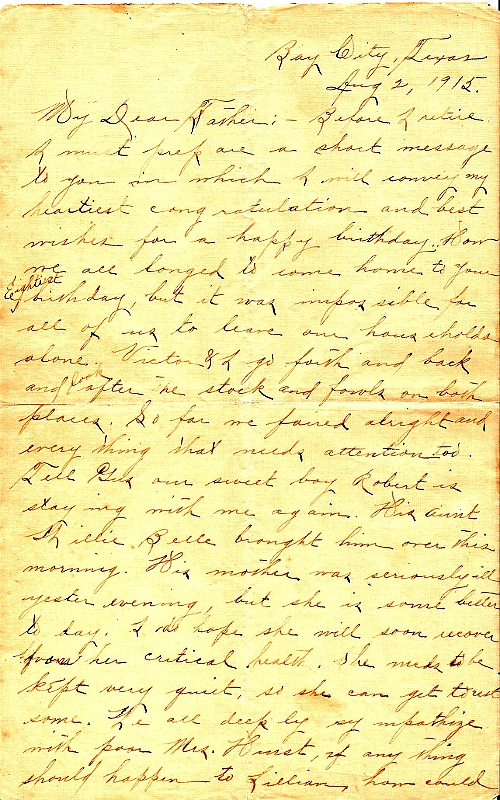 Bay City, Texas
Aug 2, 1915.
My Dear Father:- Before I retire
I must prepare a short message
to you in which I will convey my
heartiest congratulation and best
wishes for a happy birthday. How
we all longed to come home to your
Eightiest
birthday, but it was impossible for
all of us to leave our households
alone. Victor & I go forth and back
and look after the stock and fowls on both
places. So far we faired alright and
every thing that needs attention too.
Tell our sweet boy Robert is
staying with me again. His aunt
Tillie Belle brought him over this
morning. His mother was seriously ill
yester evening, but she is some better
to day. I do hope she will soon recover
from her critical health. She needs to be
kept very quiet, so she can get to rest
some. We all deeply sympathize
with poor Mrs. Hurst, if any thing
should happen to Lillian, how could